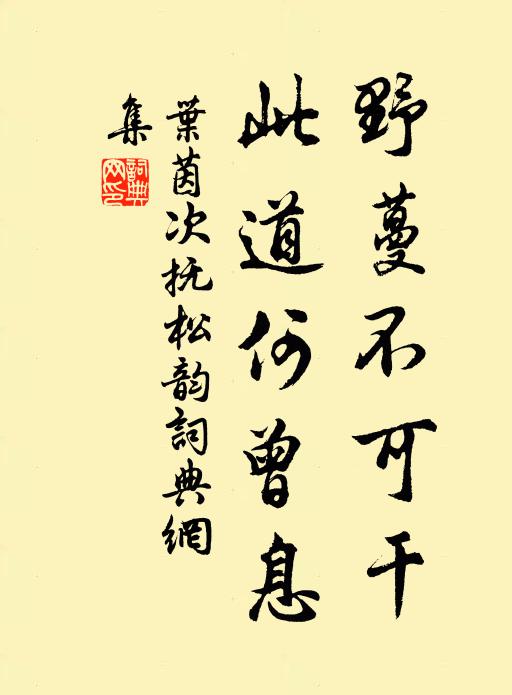 野蔓不可干
此道何曾息
葉茵次抚松韵詞典網
集
詞典
网印